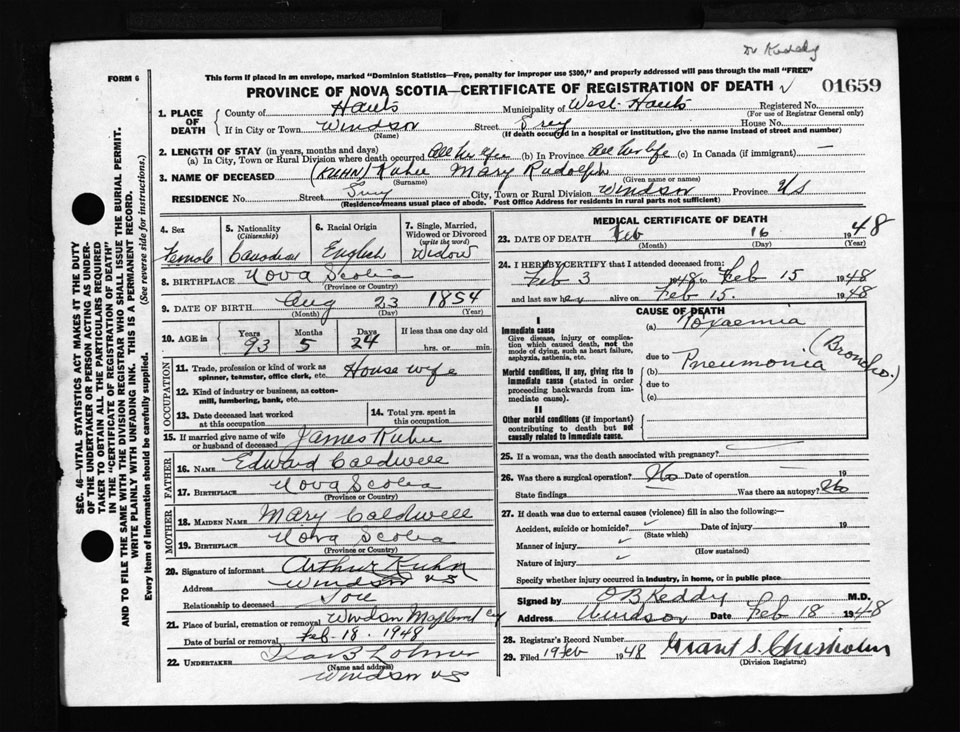 Dr Keddy
FORM 6
This form if placed in an envelope, marked "Dominion Statistics—Free, penalty for improper use $300," and properly addressed will pass through the mail "FREE"
PROVINCE OF NOVA SCOTIA—CERTIFICATE OF REGISTRATION OF DEATH
01659
1. PLACE OF DEATH County of Hants Municipality of West Hants Registered No.
(For use of Registrar General only)
If in City or Town Windsor Street Grey House No.
(Name) (If death occurred in a hospital or institution, give the name instead of street and number)
2. LENGTH OF STAY (in years, months and days)
(a) In City, Town or Rural Division where death occurred All her life (b) In Province All her life (c) In Canada (if immigrant) —
3. NAME OF DECEASED (KUHN) Kuhn Mary Rudolph
(Surname) (Given name or names)
RESIDENCE No. Street Grey City, Town or Rural Division Windsor Province NS
(Residence means usual place of abode. Post Office Address for residents in rural parts not sufficient)
SEC. 46—VITAL STATISTICS ACT MAKES IT THE DUTY
OF THE UNDERTAKER OR PERSON ACTING AS UNDER-
TAKER TO OBTAIN ALL THE PARTICULARS REQUIRED
IN THE "CERTIFICATE OF REGISTRATION OF DEATH"
AND TO FILE THE SAME WITH THE DIVISION REGISTRAR WHO SHALL ISSUE THE BURIAL PERMIT.
WRITE PLAINLY WITH UNFADING INK. THIS IS A PERMANENT RECORD.
Every item of information should be carefully supplied. (See reverse side for instructions.)
4. Sex 5. Nationality (Citizenship) 6. Racial Origin 7. Single, Married, Widowed or Divorced (write the word)
Female Canadian English Widow
8. BIRTHPLACE Nova Scotia
(Province or Country)
9. DATE OF BIRTH Aug 23 1854
(Month) (Day) (Year)
10. AGE in Years Months Days If less than one day old
93 5 24 hrs. or min
OCCUPATION
11. Trade, profession or kind of work as spinner, teamster, office clerk, etc. House wife
12. Kind of industry or business, as cotton-mill, lumbering, bank, etc.
13. Date deceased last worked at this occupation 14. Total yrs. spent in this occupation
15. If married give name of wife or husband of deceased James Kuhn
FATHER
16. NAME Edward Caldwell
17. BIRTHPLACE Nova Scotia
(Province or Country)
MOTHER
18. MAIDEN NAME Mary Caldwell
19. BIRTHPLACE Nova Scotia
(Province or Country)
20. Signature of informant Arthur Kuhn
Address Windsor NS
Relationship to deceased Son
21. Place of burial, cremation or removal Windsor
Date of burial or removal Feb. 18. 1948
22. UNDERTAKER
(Name and address)
Windsor NS
MEDICAL CERTIFICATE OF DEATH
23. DATE OF DEATH Feb 16 1948
(Month) (Day) (Year)
24. I HEREBY CERTIFY that I attended deceased from:
Feb 3 1948 to Feb 15 1948
and last saw her alive on Feb 15. 1948
CAUSE OF DEATH
I
Immediate cause
Give disease, injury or complication which caused death, not the mode of dying, such as heart failure, asphyxia, asthenia, etc.
(a) Toxaemia
due to
Morbid conditions, if any, giving rise to immediate cause (stated in order proceeding backwards from immediate cause).
(b) Pneumonia (Broncho.)
due to
(c)
II
Other morbid conditions (if important) contributing to death but not causally related to immediate cause.
25. If a woman, was the death associated with pregnancy?
26. Was there a surgical operation? No Date of operation 19
State findings Was there an autopsy? No
27. If death was due to external causes (violence) fill in also the following:—
Accident, suicide or homicide? Date of injury 19
(State which)
Manner of injury
(How sustained)
Nature of injury
Specify whether injury occurred in industry, in home, or in public place
Signed by O B Keddy M.D.
Address Windsor Date Feb 18 1948
28. Registrar's Record Number
29. Filed 19 Feb 1948 Grant S. Chisholm
(Division Registrar)